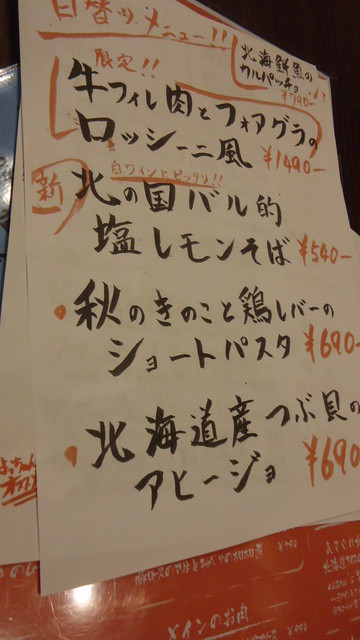 日替りメニュー!!
北海鮮魚の
カルパッチョ
¥790-
限定!!
牛フィレ肉とフォアグラの
ロッシーニ風 ¥1490-
新
白ワインとピッタリ!!
北の国バル的
塩レモンそば ¥540-
秋のきのこと鶏レバーの
ショートパスタ ¥690-
北海道産つぶ貝の
アヒージョ ¥690
メインのお肉